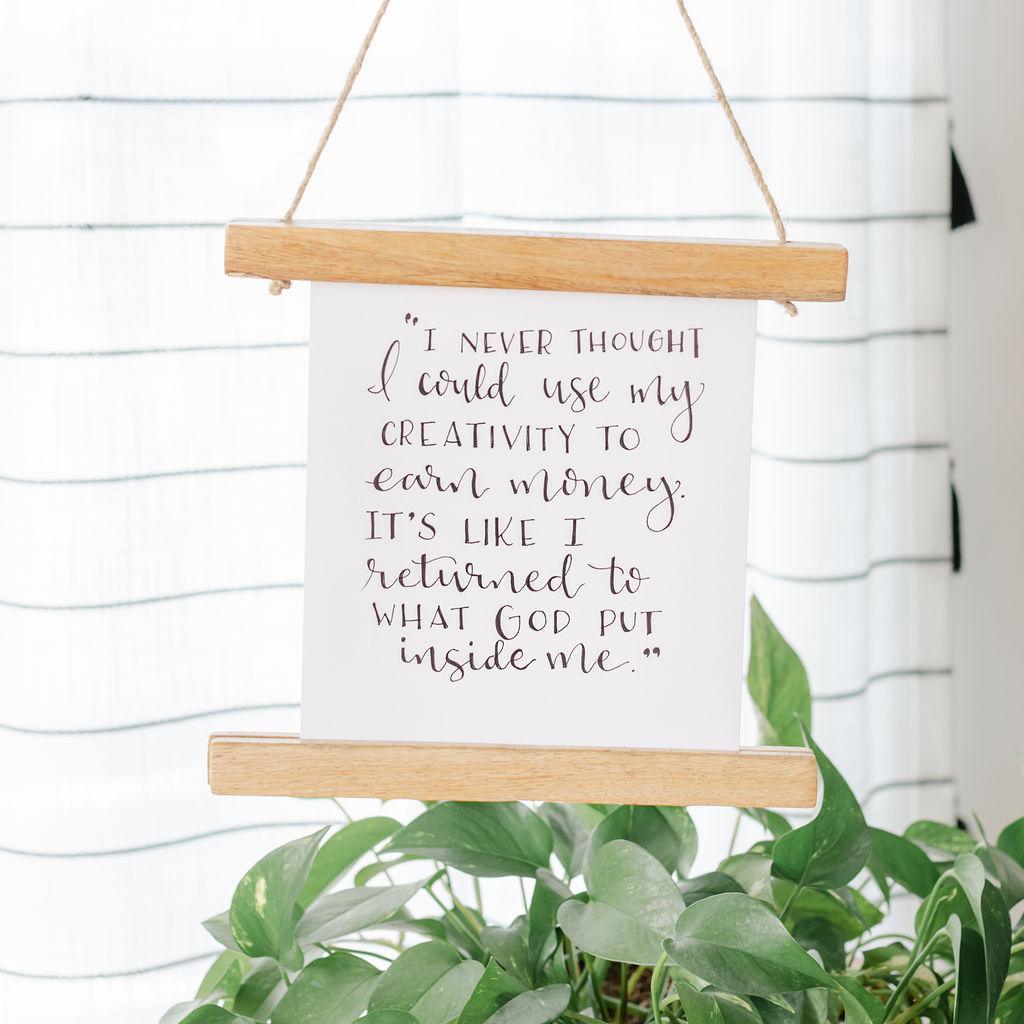 "I NEVER THOUGHT
I could use my
CREATIVITY TO
earn money.
IT'S LIKE I
returned to
WHAT GOD PUT
inside me."